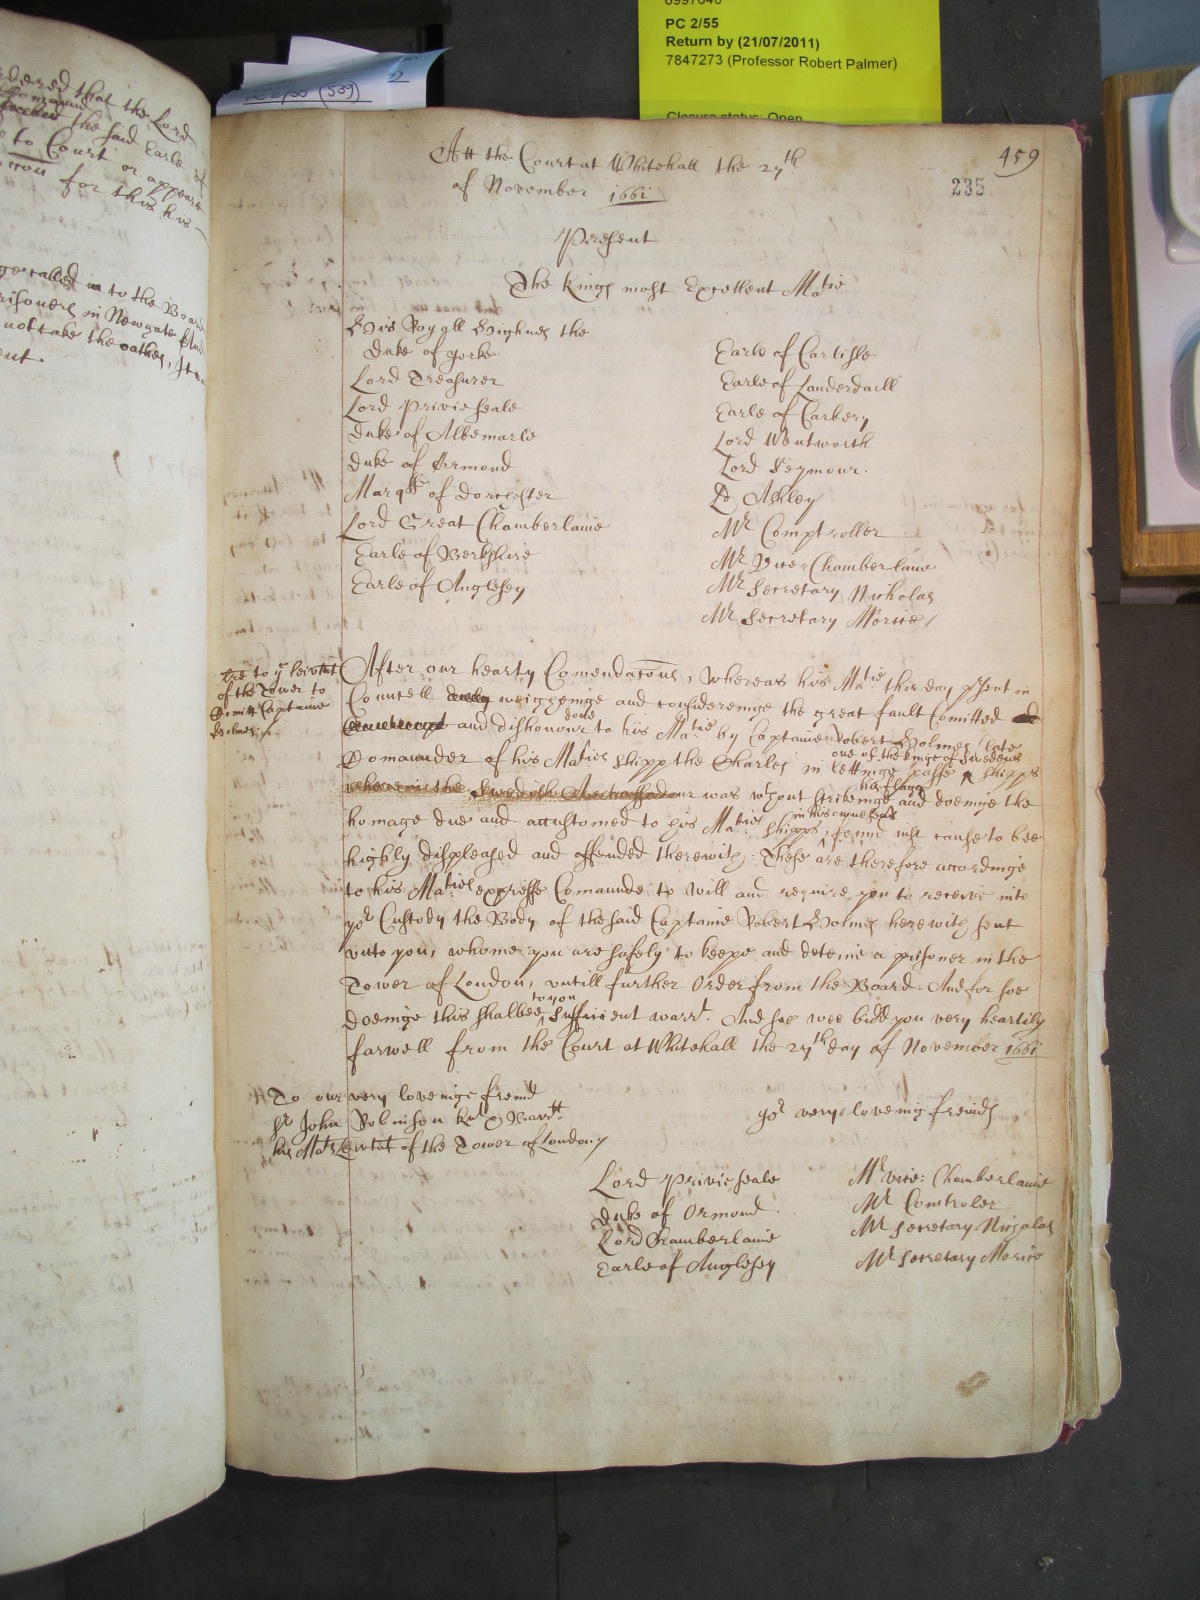 6997646
PC 2/55
Return by (21/07/2011)
7847273 (Professor Robert Palmer)
Closure status: Open
(509)
rdered that the Lord
the said Earle of
to Court or appeare
for this his
called in to the Board
risoners in Newgate
not take the oathes, It
459
235
Att the Court at Whitehall the 27th
of November 1661
Present
The Kings most Excellent Matie
His Royall Highnes the
Duke of Yorke
Lord Treasurer
Lord Privie Seale
Duke of Albemarle
Duke of Ormond
Marqss of Dorchester
Lord Great Chamberlaine
Earle of Berkshire
Earle of Anglesey
Earle of Carlisle
Earle of Lauderdaill
Earle of Carbery
Lord Wentworth
Lord Seymour.
Lo Ashley
Mr Comptroller
Mr Vice-Chamberlaine
Mr Secretary Nicholas
Mr Secretary Morice /
tre to ye Leivtnt
of the Tower to
Comitt Captaine
Holmes /.
After our hearty Comendations, Whereas his Matie this day psent in
Councell weighinge and consideringe the great fault Comitted
and dishonour done to his Matie by Captaine Robert Holmes (late
Comaunder of his Maties Shipp the Charles in lettinge passe one of the kinge of Swedens shipps
wherein the Swedish Ambassadour was wthout strikinge his flagg and doeinge the
homage due and accustomed to his Maties Shipps, in his owne seas found just cause to bee
highly displeased and offended therewith: These are therefore accordinge
to his Maties expresse Comaunde to will and require you to receive into
yor Custody the Body of the said Captaine Robert Holmes herewith sent
unto you, whome you are safely to keepe and deteine a prisoner in the
Tower of London, untill further Order from the Board. And for soe
doeinge this shalbee to you Sufficient warrt. And soe wee bidd you very heartily
farwell from the Court at Whitehall the 27th day of November 1661
To our very loveinge freind
Sr John Robinson Knt & Bartt
his Mats Leivtnt of the Tower of London /
yor very loveing freinds
Lord Privie Seale
Duke of Ormond
Lord Chamberlaine
Earle of Anglesey
Mr Vice: Chamberlaine
Mr Comtroler
Mr Secretary Nicholas
Mr Secretary Morice